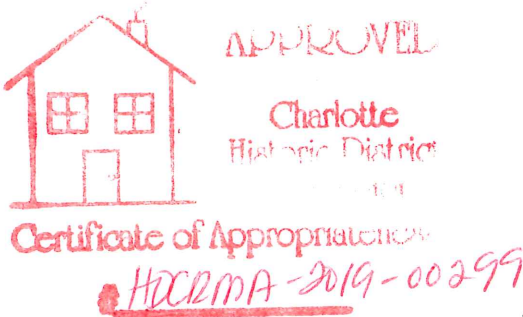 APPROVED
Charlotte
Historic District
Certificate of Appropriateness
# HDCRMA-2019-00299